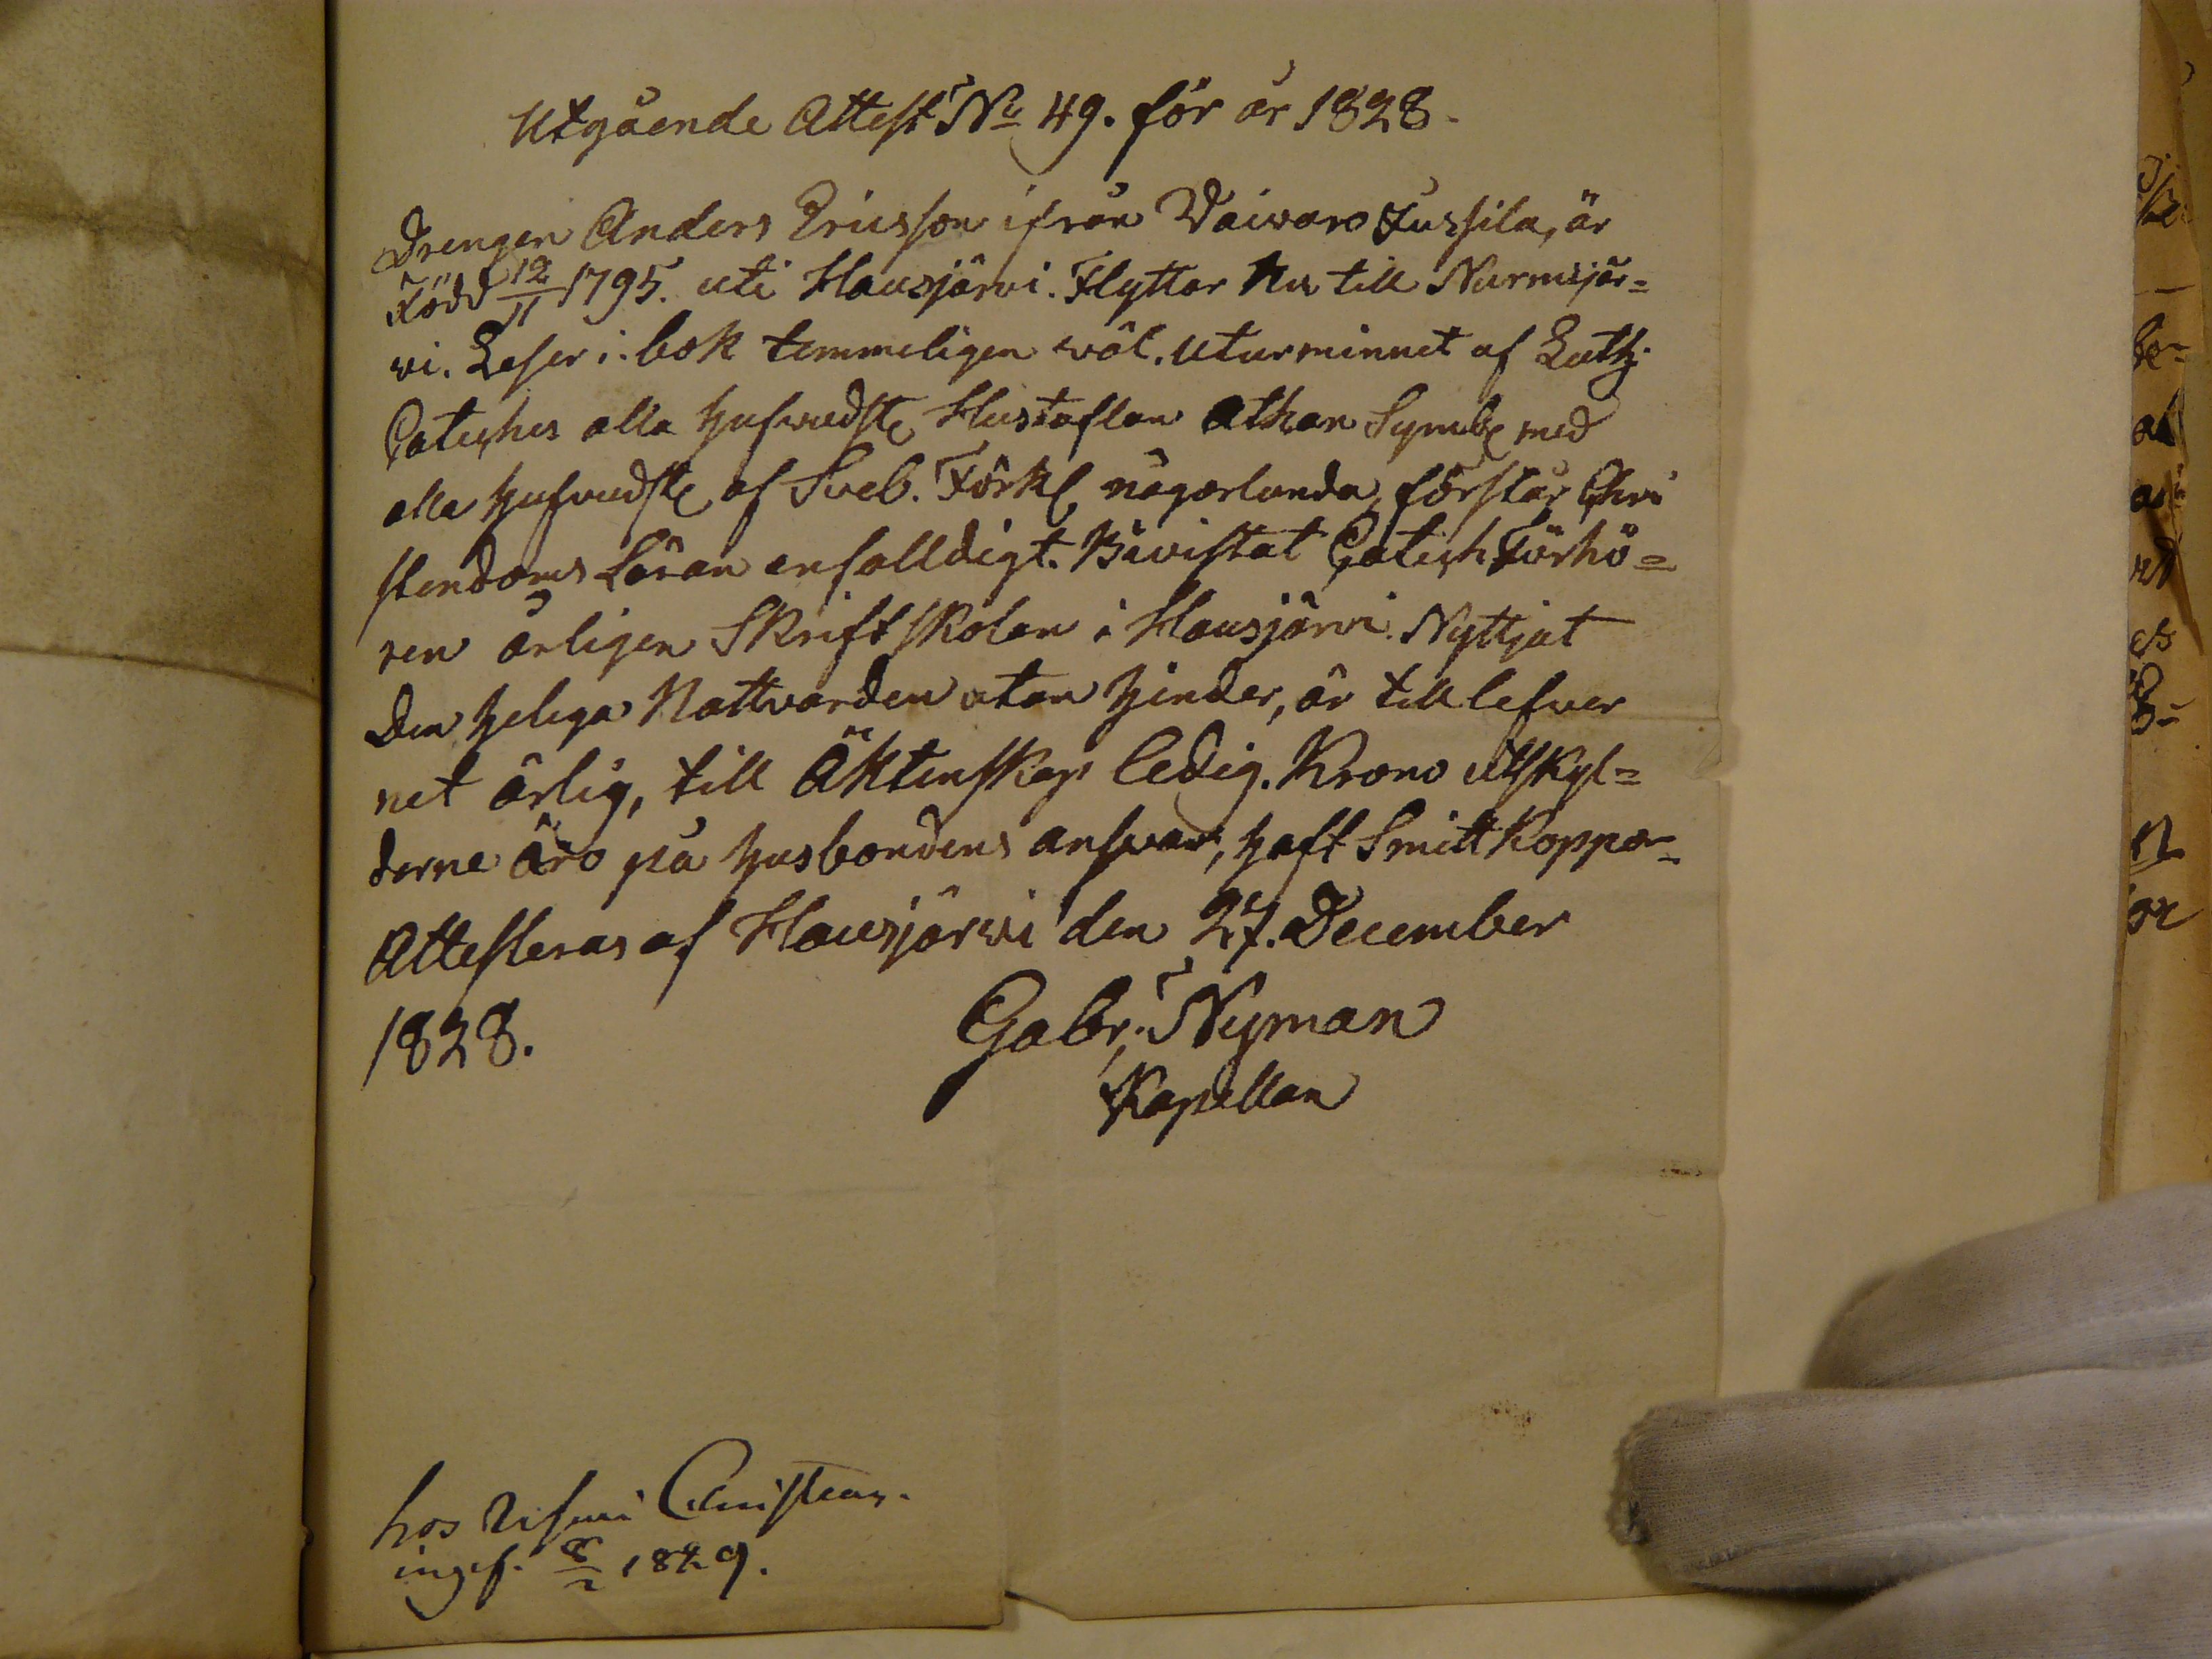 Utgående Attest No 49. för år 1828.
Drengen Anders Ericsson ifrån Waiwaro Jussila, är
Född 12/11 1795. uti Hausjärvi. Flyttar nu till Nurmijär=
vi. Leser i bok temmeligen väl. Utur minnet af Luth.
Cateches alla hufvudst Hustaflan Athan Symb med
alla hufvudst af Sveb. Förkl någorlunda, förstår Chri
stendoms Läran enfalldigt. Bivistat Catech Förhö=
ren årligen Skriftskolan i Hausjärvi. Nyttjat
Den heliga Nattvarden utan hinder, är till lefver
net ärlig, till Äktenskap ledig. Krono utskyl=
derne äro på husbondens ansvar, haft Smittkoppor
Attesteras af Hausjärvi den 27. December
1828.
Gabr: Nyman
Kapellan
hos
ingif. 8/2 1829.
be-